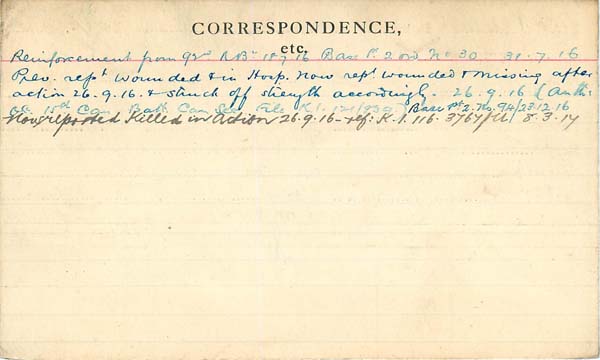 CORRESPONDENCE,
etc.
Reinforcement from 92nd R Bn 18.7.16 Base Pt 2 ord No 30 31.7.16
Prev. rept wounded & in Hosp. Now rept wounded & missing after
action 26.9.16 & struck off strength accordingly. 26.9.16 (Auth:
15th Can Batt. Can Sec File K1. 121/939) Base Pt 2. No. 94/23.12.16
Now reported Killed in Action 26.9.16 - ref: K.1.116.3767/ 8.3.17